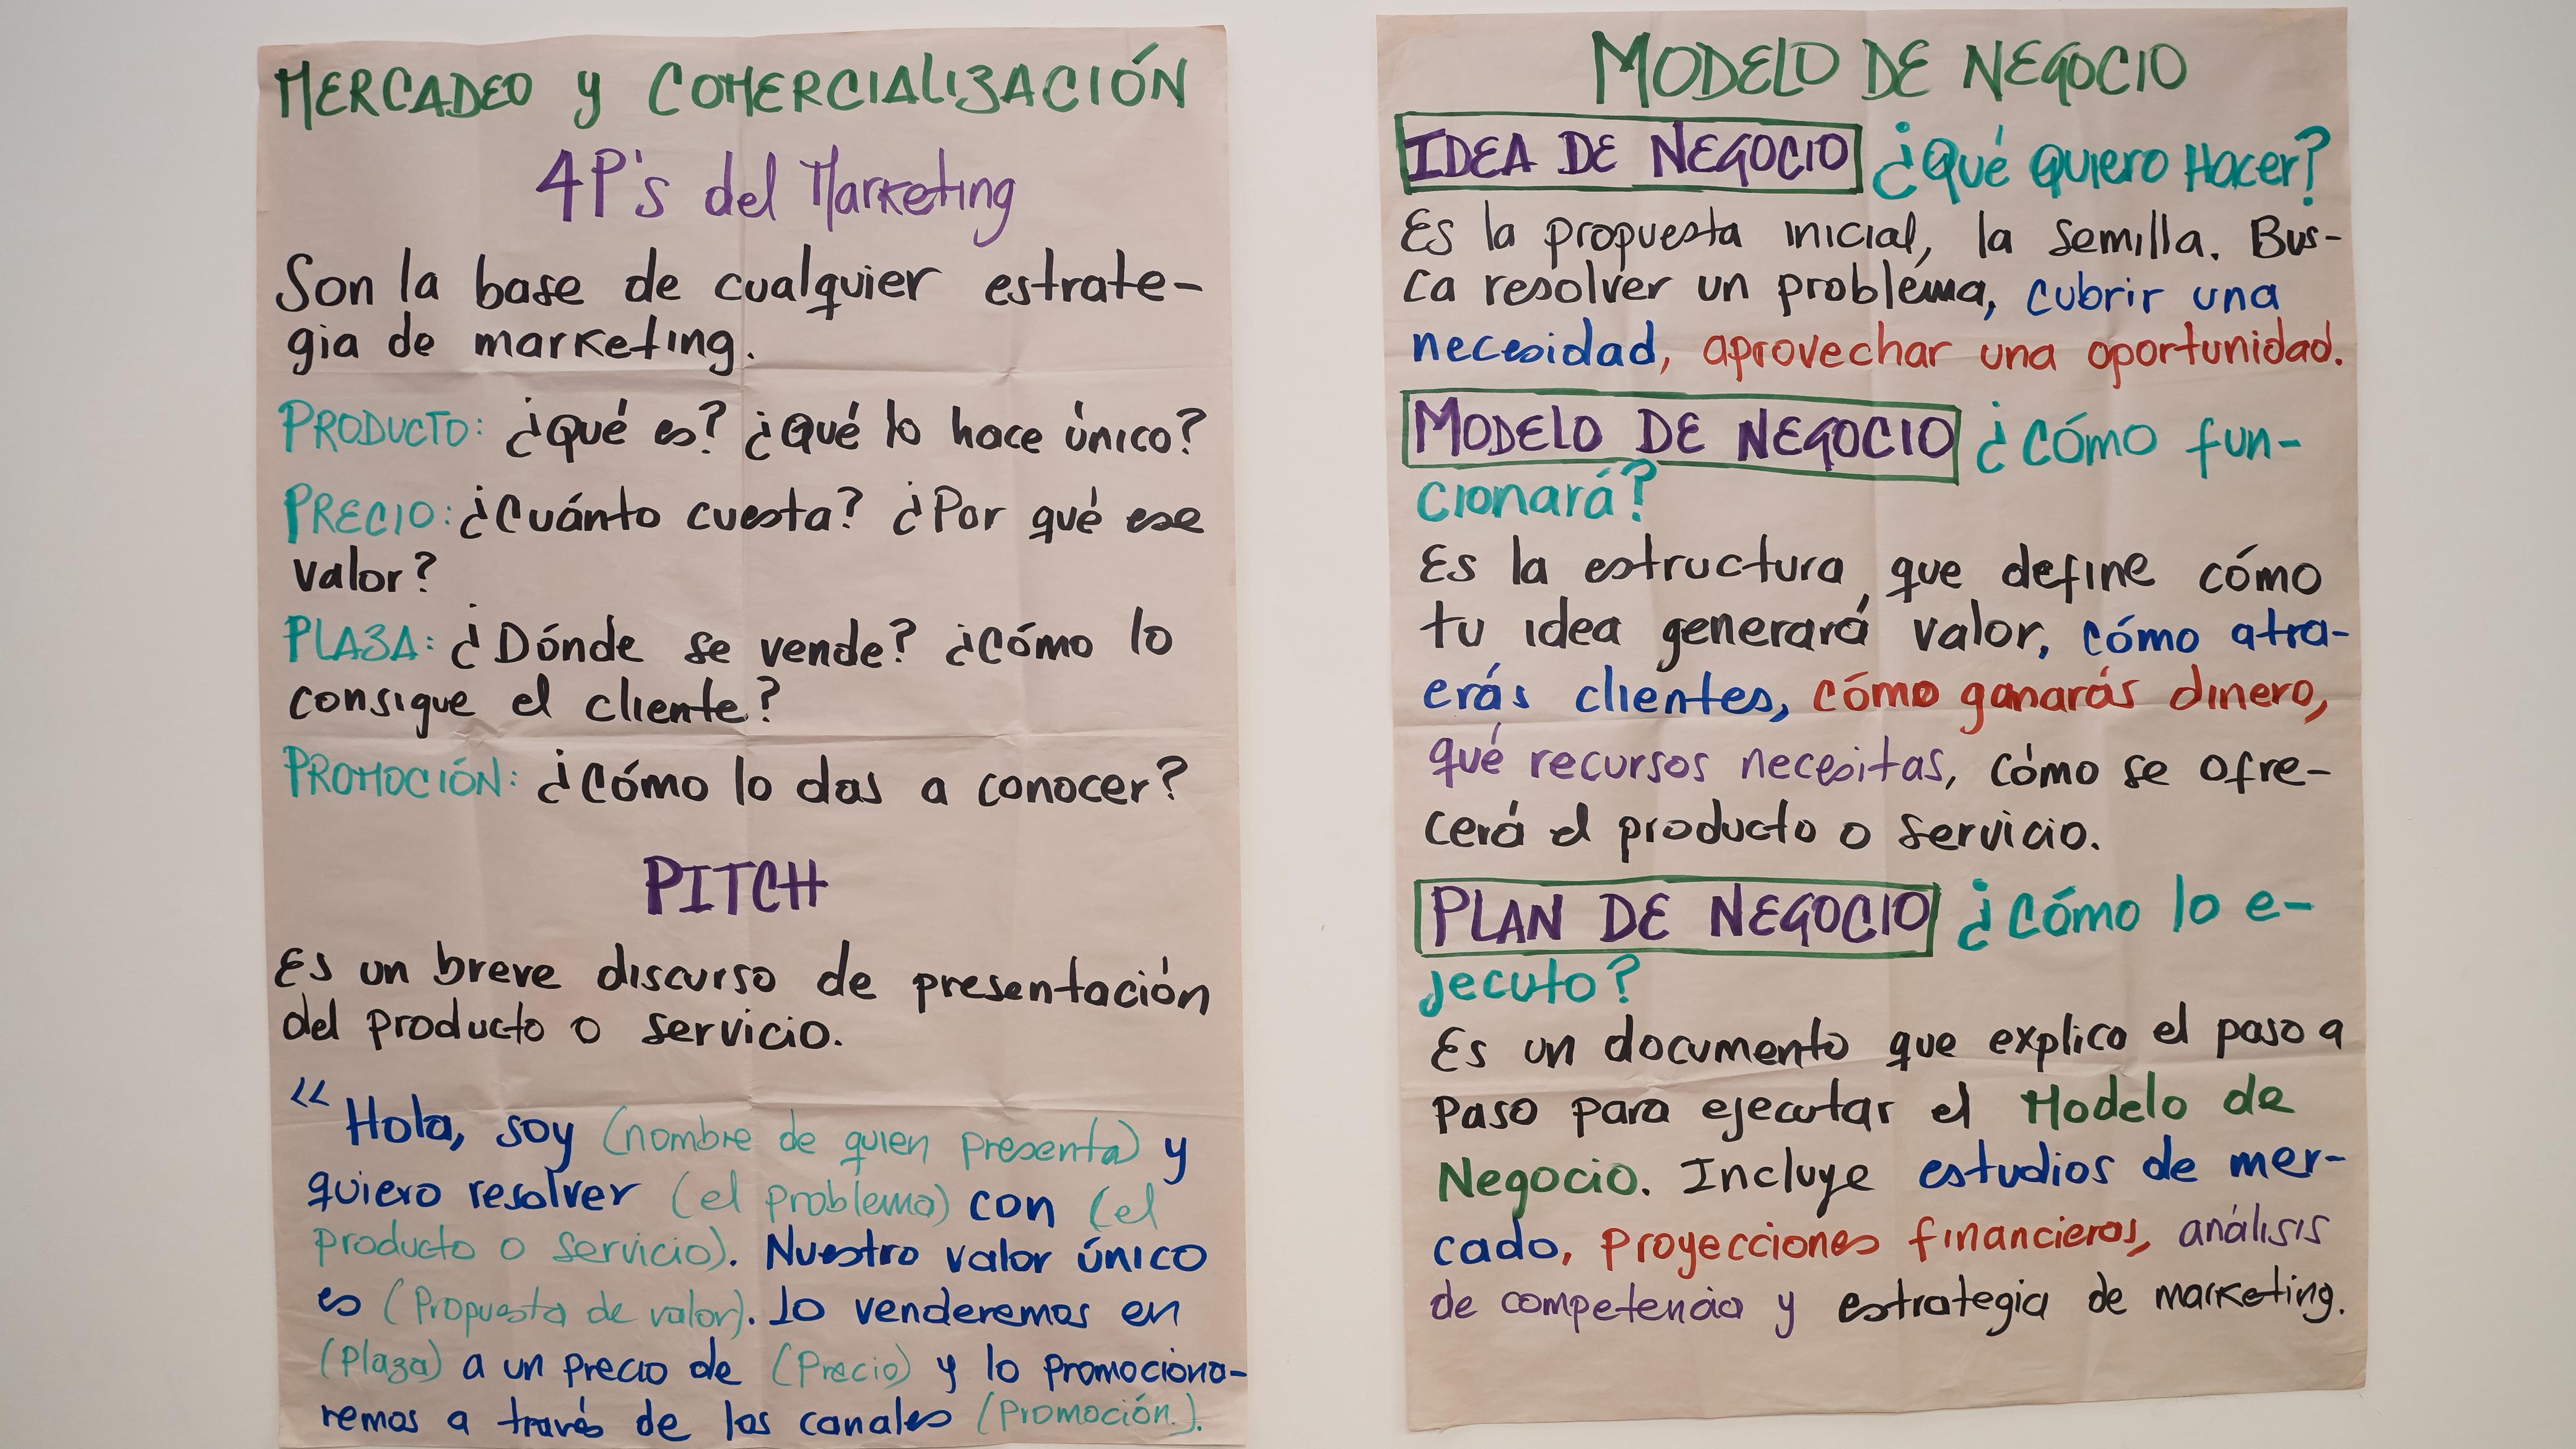 MERCADEO y COMERCIALIZACIÓN
4P's del Marketing
Son la base de cualquier estrate-
gia de marketing.
PRODUCTO: ¿Qué es? ¿Qué lo hace único?
PRECIO: ¿Cuánto cuesta? ¿Por qué ese
valor?
PLAZA: ¿Dónde se vende? ¿Cómo lo
consigue el cliente?
PROMOCIÓN: ¿Cómo lo das a conocer?
PITCH
Es un breve discurso de presentación
del producto o servicio.
“Hola, soy (nombre de quien presenta) y
quiero resolver (el problema) con (el
producto o servicio). Nuestro valor único
es (Propuesta de valor). Lo venderemos en
(Plaza) a un precio de (Precio) y lo promociona-
remos a través de los canales (Promoción).
MODELO DE NEGOCIO
IDEA DE NEGOCIO ¿Qué quiero Hacer?
Es la propuesta inicial, la semilla. Bus-
ca resolver un problema, cubrir una
necesidad, aprovechar una oportunidad.
MODELO DE NEGOCIO ¿Cómo fun-
cionará?
Es la estructura que define cómo
tu idea generará valor, cómo atra-
erás clientes, cómo ganarás dinero,
qué recursos necesitas, cómo se ofre-
cerá el producto o servicio.
PLAN DE NEGOCIO ¿Cómo lo e-
jecuto?
Es un documento que explica el paso a
paso para ejecutar el Modelo de
Negocio. Incluye estudios de mer-
cado, proyecciones financieras, análisis
de competencia y estrategia de marketing.